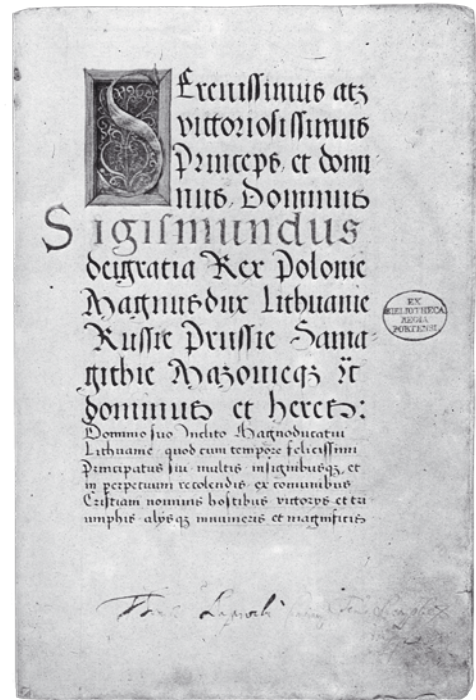 Serenissimus atq3
victoriosissimus
Princeps, et domi
nus, Dominus
Sigismundus
deigratia Rex Polonie
Magnus dux Lithuanie
Russie Prussie Sama
githie Mazovieq3 ꝛc̄
dominus et heres:
Dominio suo Inclito Magnoducatui
Lithuanie quod cum tempore felicissimi
Principatus sui multis insignibusq3, et
in perpetuum recolendis ex comunibus
Cristiani nominis hostibus victorys et tri
umphis alysq3 innumeris et magnificis
EX
BIBLIOTHECA
REGIA
PORTENSI